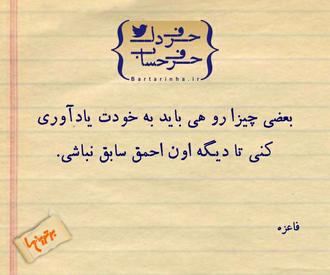 حرف دل
حرف حساب
Bartarinha.ir
بعضی چیزا رو هی باید به خودت یادآوری
کنی تا دیگه اون احمق سابق نباشی.
فاعزه
برترینها